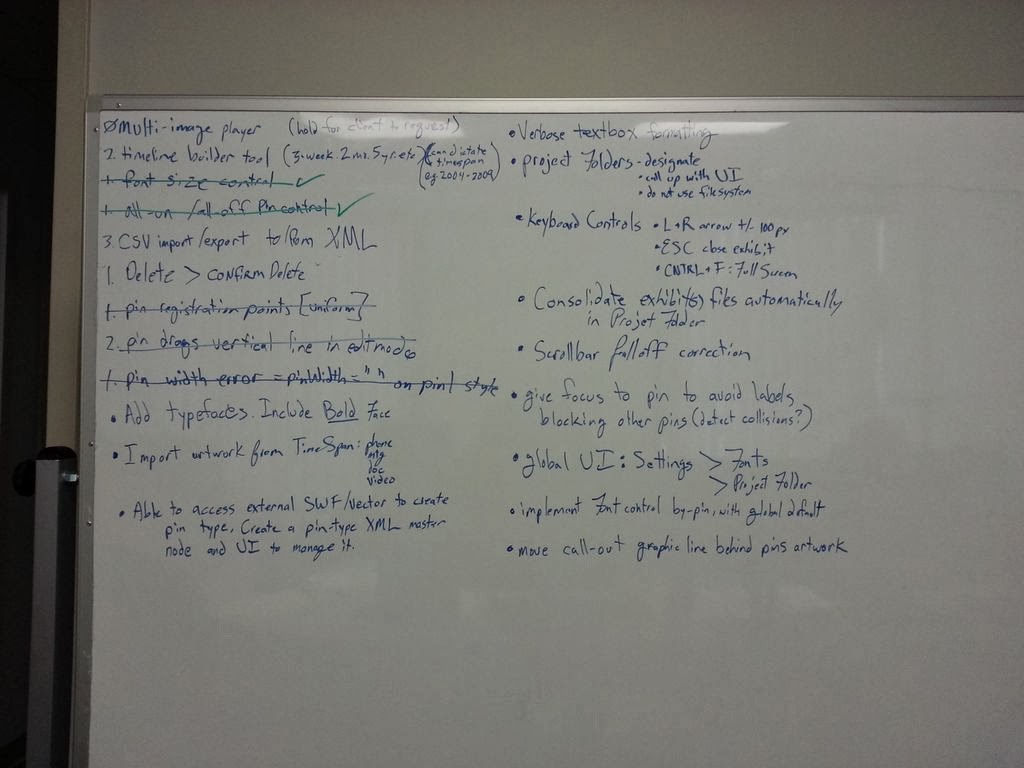 Ø Multi-image player (hold for client to request)
2. timeline builder tool (3-week. 2mo. 5yr. etc) (can dictate
timespan
e.g. 2004-2009)
1. font size control ✓
1. all-on /all off Pin control ✓
3. CSV import/export to/from XML
1. Delete > CONFIRM Delete
1. pin registration points [uniform]
2. pin drags vertical line in edit mode
1. pin width error = pinWidth=" " on pin/ style
• Add typefaces. Include Bold Face
• Import artwork from TimeSpan: phone
mtg
doc
video
• Able to access external SWF/vector to create
pin type. Create a pin-type XML master
node and UI to manage it.
• Verbose textbox formatting
• project Folders - designate
• call up with UI
• do not use filesystem
• Keyboard Controls • L+R arrow +/- 100px
• ESC close exhibit
• CNTRL + F: Full Screen
• Consolidate exhibit(s) files automatically
in Projet Folder
• Scrollbar falloff correction
• give focus to pin to avoid labels
blocking other pins (detect collisions?)
• global UI: Settings > Fonts
> Project Folder
• implement Font control by-pin, with global default
• move call-out graphic line behind pins artwork